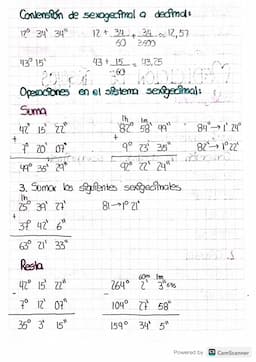 Conversión de sexagecimal a decimal:
12° 34' 34" 12 + 34/60 + 34/3600 = 12,57
43° 15' 43 + 15/60 = 43,25
Operaciones en el sistema sexagecimal:
Suma
42° 15' 22" 82° 58' 49" 84" → 1' 24"
+ 7° 20' 07" + 9° 23' 35" 82' → 1° 22'
49° 35' 29" 92° 22' 24"
3. Sumar los siguientes sexagecimales
25° 39' 27" 81 → 1° 21'
+ 37° 42' 6"
63° 21' 33"
Resta
42° 15' 22" 264° 2' 3"
- 7° 12' 07" - 104° 27' 58"
35° 3' 15" 159° 34' 5"
Powered by CS CamScanner